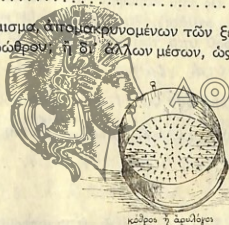 μισμα, ἀπομακρυνομένων τῶν ξε
ώθρου; ἢ δι' ἄλλων μέσων, ὡς
ΑΘ
κόθρος ἢ ἀρυλόγος